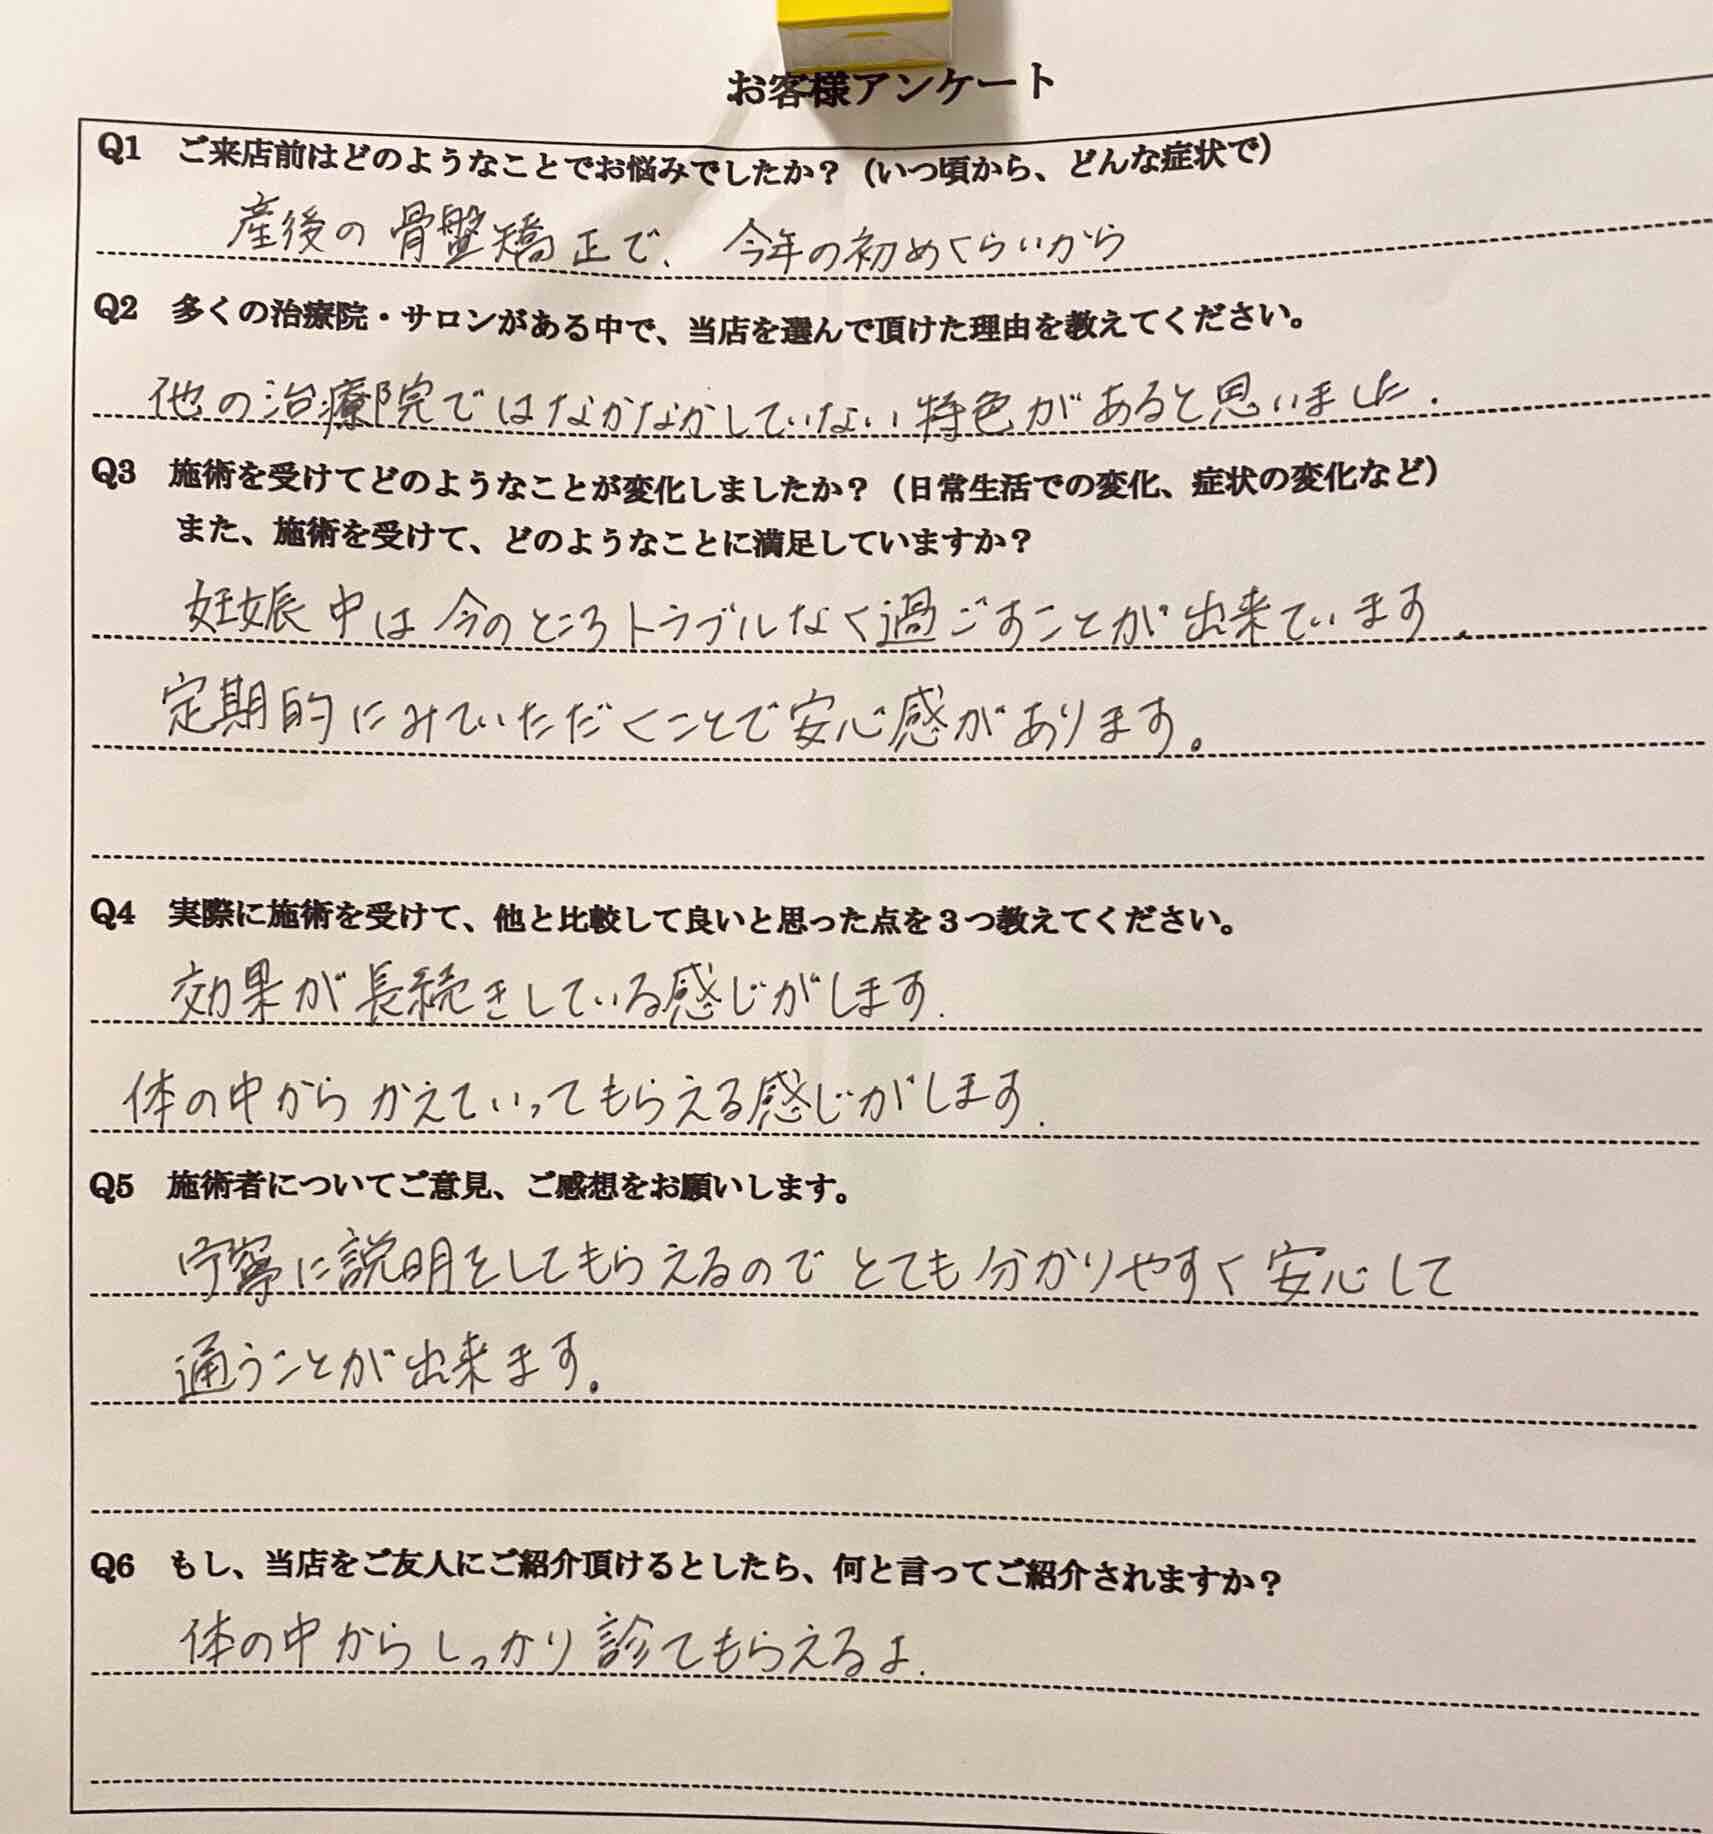 お客様アンケート
Q1 ご来店前はどのようなことでお悩みでしたか？（いつ頃から、どんな症状で）
産後の骨盤矯正で、今年の初めくらいから
Q2 多くの治療院・サロンがある中で、当店を選んで頂けた理由を教えてください。
他の治療院ではなかなかしていない特色があると思いました.
Q3 施術を受けてどのようなことが変化しましたか？（日常生活での変化、症状の変化など）
また、施術を受けて、どのようなことに満足していますか？
妊娠中は今のところトラブルなく過ごすことが出来ています.
定期的にみていただくことで安心感があります。
Q4 実際に施術を受けて、他と比較して良いと思った点を３つ教えてください。
効果が長続きしている感じがします.
体の中からかえていってもらえる感じがします.
Q5 施術者についてご意見、ご感想をお願いします。
丁寧に説明をしてもらえるのでとても分かりやすく安心して
通うことが出来ます。
Q6 もし、当店をご友人にご紹介頂けるとしたら、何と言ってご紹介されますか？
体の中からしっかり診てもらえるよ.